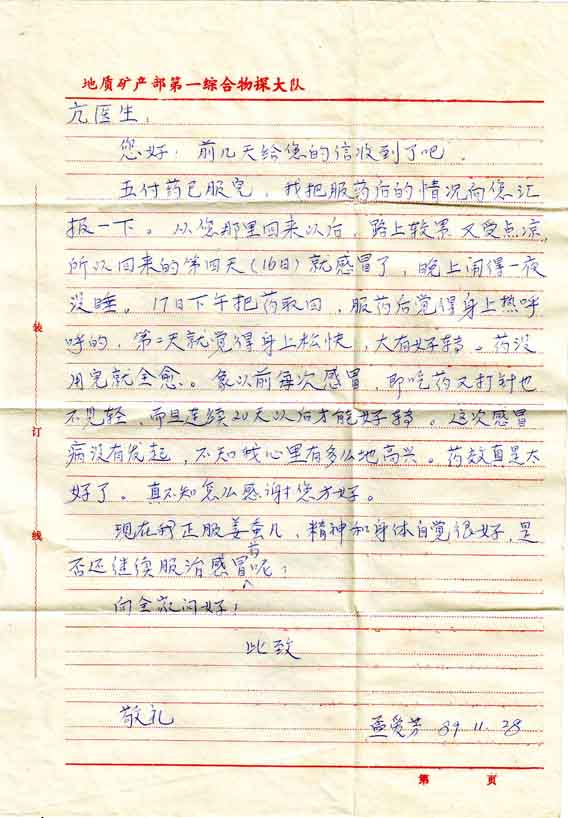 地质矿产部第一综合物探大队
亢医生：
您好！前几天给您的信收到了吧。
五付药已服完，我把服药后的情况向您汇
报一下。从您那里回来以后，路上较累又受点凉，
所以回来的第四天（16日）就感冒了，晚上闹得一夜
没睡。17日下午把药取回，服药后觉得身上热呼
呼的，第二天就觉得身上松快，大有好转。药没
用完就全愈。象以前每次感冒，即吃药又打针也
不见轻，而且连续20天以后才能好转。这次感冒
病没有发起，不知我心里有多么地高兴。药效真是太
好了。真不知怎么感谢您才好。
现在我正服姜蚕儿，精神和身体自觉很好，是
否还继续服治感冒药呢？
向全家问好！
此致
敬礼
孟爱芳 89.11.28
装
订
线
第 页